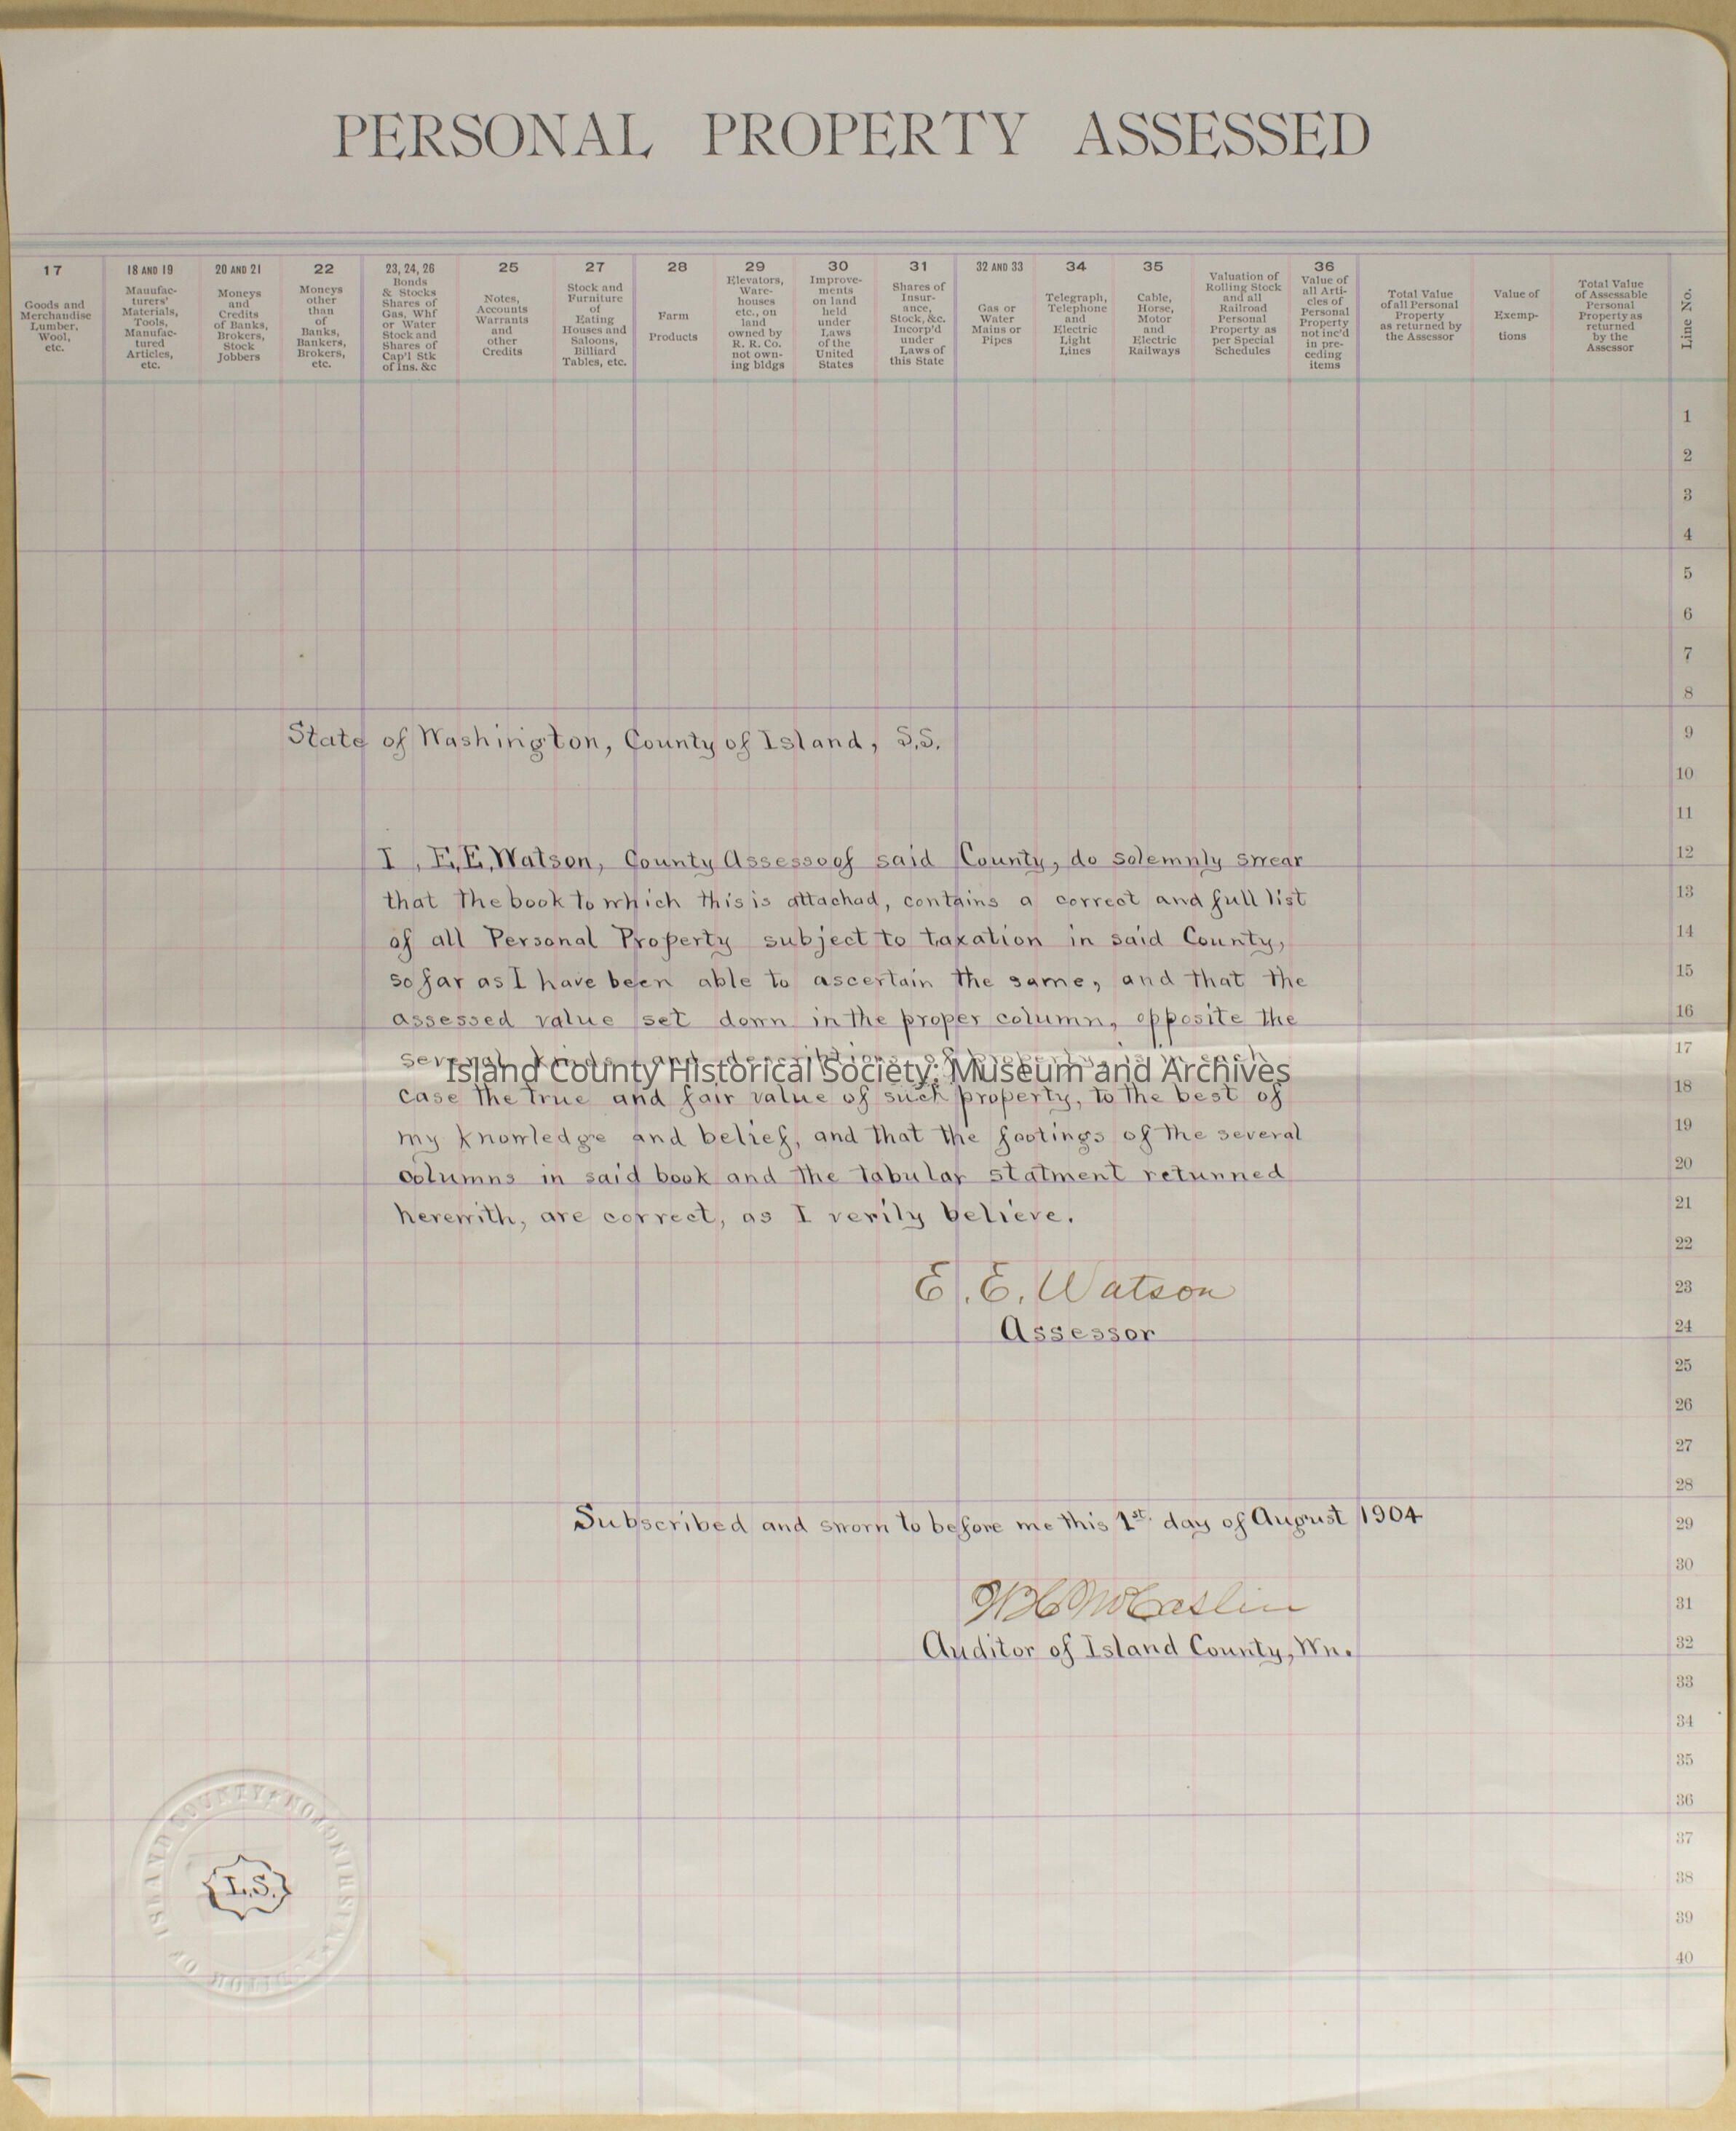 PERSONAL PROPERTY ASSESSED
17
Goods and
Merchandise
Lumber,
Wool,
etc.
18 AND 19
Manufac-
turers'
Materials,
Tools,
Manufac-
tured
Articles,
etc.
20 AND 21
Moneys
and
Credits
of Banks,
Brokers,
Stock
Jobbers
22
Moneys
other
than
of
Banks,
Bankers,
Brokers,
etc.
23, 24, 26
Bonds
& Stocks
Shares of
Gas, Whf
or Water
Stock and
Shares of
Cap'l Stk
of Ins. &c
25
Notes,
Accounts
Warrants
and
other
Credits
27
Stock and
Furniture
of
Eating
Houses and
Saloons,
Billiard
Tables, etc.
28
Farm
Products
29
Elevators,
Ware-
houses
etc., on
land
owned by
R. R. Co.
not own-
ing bldgs
30
Improve-
ments
on land
held
under
Laws
of the
United
States
31
Shares of
Insur-
ance,
Stock, &c.
Incorp'd
under
Laws of
this State
32 AND 33
Gas or
Water
Mains or
Pipes
34
Telegraph,
Telephone
and
Electric
Light
Lines
35
Cable,
Horse,
Motor
and
Electric
Railways
Valuation of
Rolling Stock
and all
Railroad
Personal
Property as
per Special
Schedules
36
Value of
all Arti-
cles of
Personal
Property
not inc'd
in pre-
ceding
items
Total Value
of all Personal
Property
as returned by
the Assessor
Value of
Exemp-
tions
Total Value
of Assessable
Personal
Property as
returned
by the
Assessor
Line No.
1
2
3
4
5
6
7
8
State of Washington, County of Island, S.S.
9
10
11
I, E.E. Watson, County Assessoof said County, do solemnly swear
12
that the book to which this is attachad, contains a correct and full list
13
of all Personal Property subject to taxation in said County,
14
so far as I have been able to ascertain the same, and that the
15
assessed value set down in the proper column, opposite the
16
several kinds and describtions of property, is in each
17
Island County Historical Society: Museum and Archives
case the true and fair value of such property, to the best of
18
my knowledge and belief, and that the footings of the several
19
columns in said book and the tabular statment returned
20
herewith, are correct, as I verily believe.
21
22
E. E. Watson
23
Assessor
24
25
26
27
28
Subscribed and sworn to before me this 1st. day of August 1904
29
30
McCaslin
31
Auditor of Island County, Wn.
32
33
34
35
36
37
38
39
40
L.S.
AUDITOR OF ISLAND COUNTY, WASHINGTON